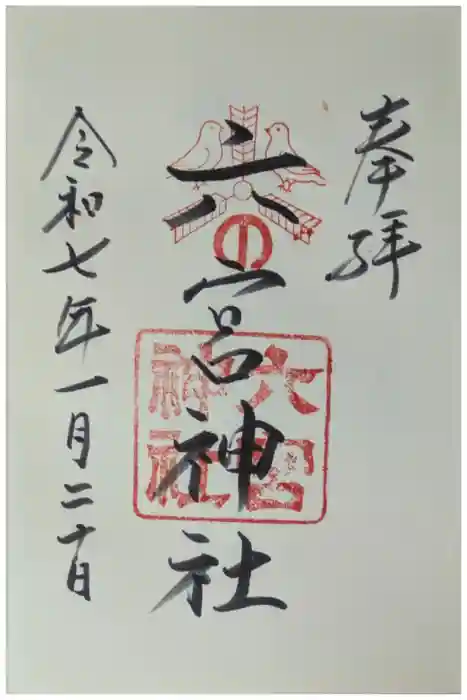 奉拝
六宮神社
六宮
神社
令和七年一月二十日